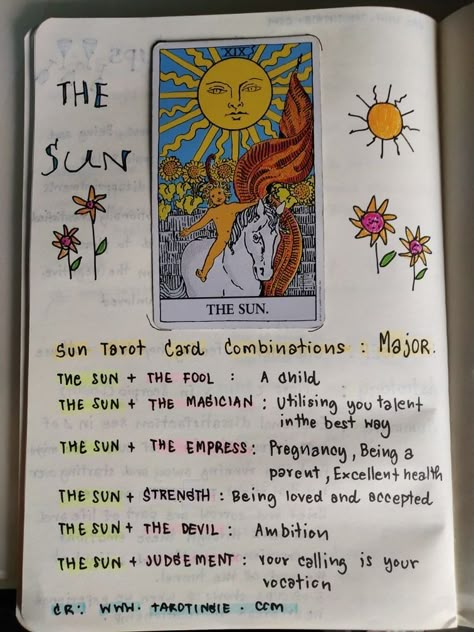 THE
SUN
XIX
THE SUN.
Sun Tarot Card Combinations : Major.
The SUN + THE FOOL : A child
THE SUN + THE MAGICIAN : Utilising you talent
in the best way
THE SUN + THE EMPRESS : Pregnancy, Being a
parent, Excellent health
THE SUN + STRENGTH : Being loved and accepted
THE SUN + THE DEVIL : Ambition
THE SUN + JUDGEMENT : Your calling is your
vocation
CR: WWW. TAROTINGIE . COM